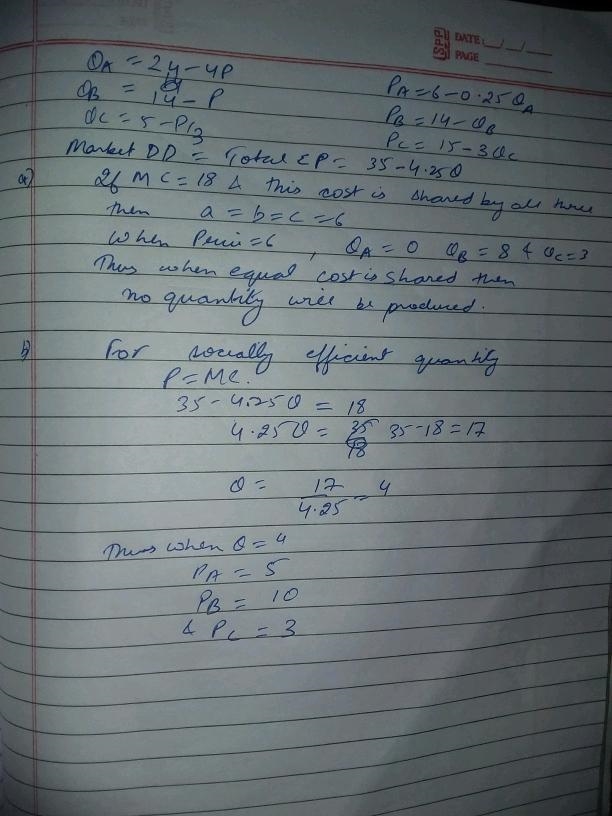 SPP DATE: _/_/_
PAGE
QA = 24 - 4P
QB = 14 - P
QC = 5 - P/3
PA = 6 - 0.25QA
PB = 14 - QB
PC = 15 - 3QC
Market DD = Total ΣP = 35 - 4.25Q
a) If MC = 18 & this cost is shared by all three
then a = b = c = 6
when Price = 6, QA = 0 QB = 8 & QC = 3
Thus when equal cost is shared then
no quantity will be produced.
b) For socially efficient quantity
P = MC.
35 - 4.25Q = 18
4.25Q = 35 - 18 = 17
Q = 17/4.25 = 4
Thus when Q = 4
PA = 5
PB = 10
& PC = 3